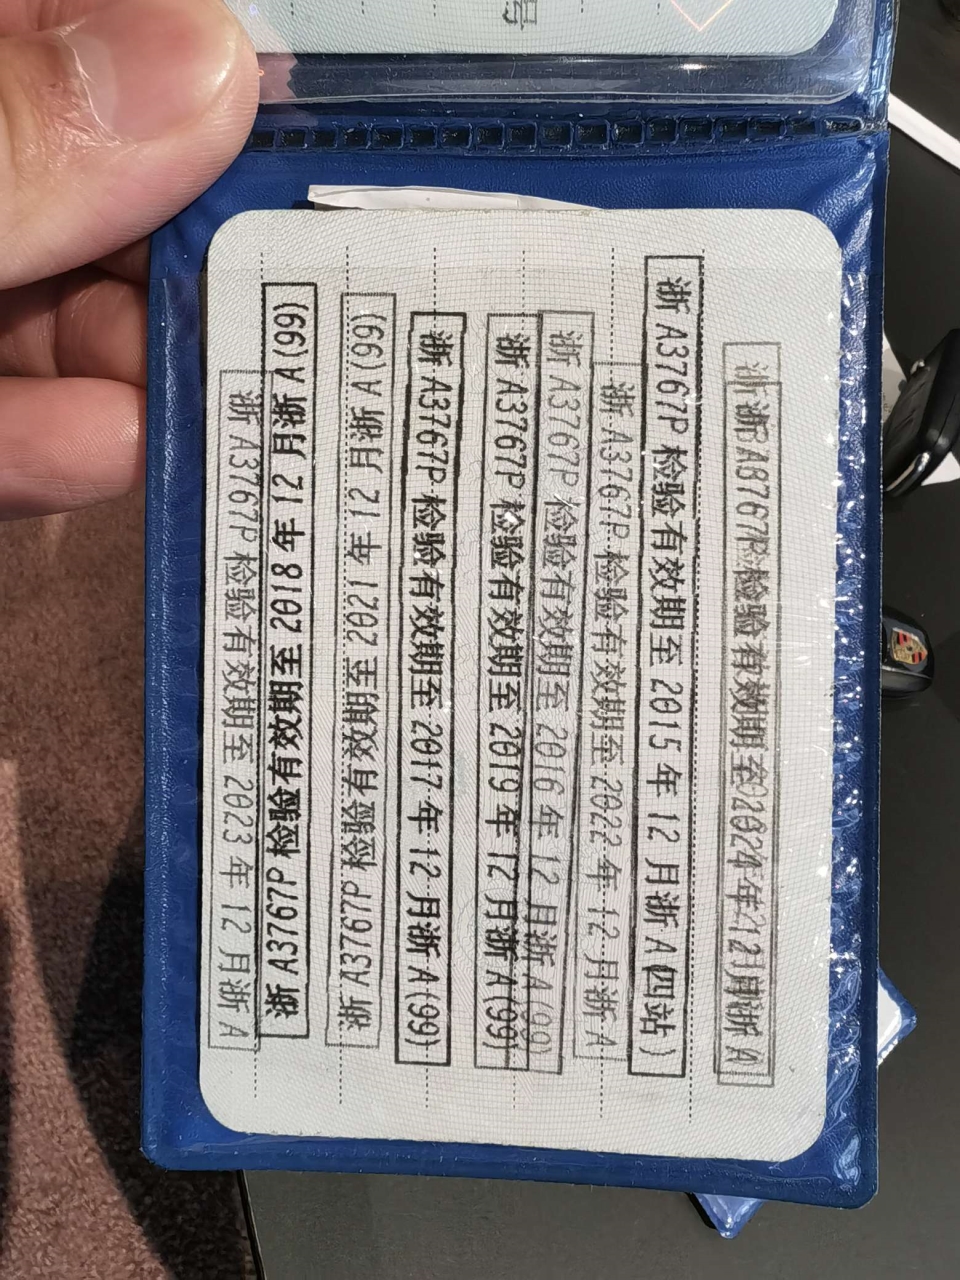 号
浙 A3767P 检验有效期至 2024 年 12 月浙 A
浙 A3767P 检验有效期至 2015 年 12 月浙 A(四站)
浙 A3767P 检验有效期至 2022 年 12 月浙 A
浙 A3767P 检验有效期至 2016 年 12 月浙 A(99)
浙 A3767P 检验有效期至 2019 年 12 月浙 A(99)
浙 A3767P 检验有效期至 2017 年 12 月浙 A(99)
浙 A3767P 检验有效期至 2021 年 12 月浙 A(99)
浙 A3767P 检验有效期至 2018 年 12 月浙 A(99)
浙 A3767P 检验有效期至 2023 年 12 月浙 A